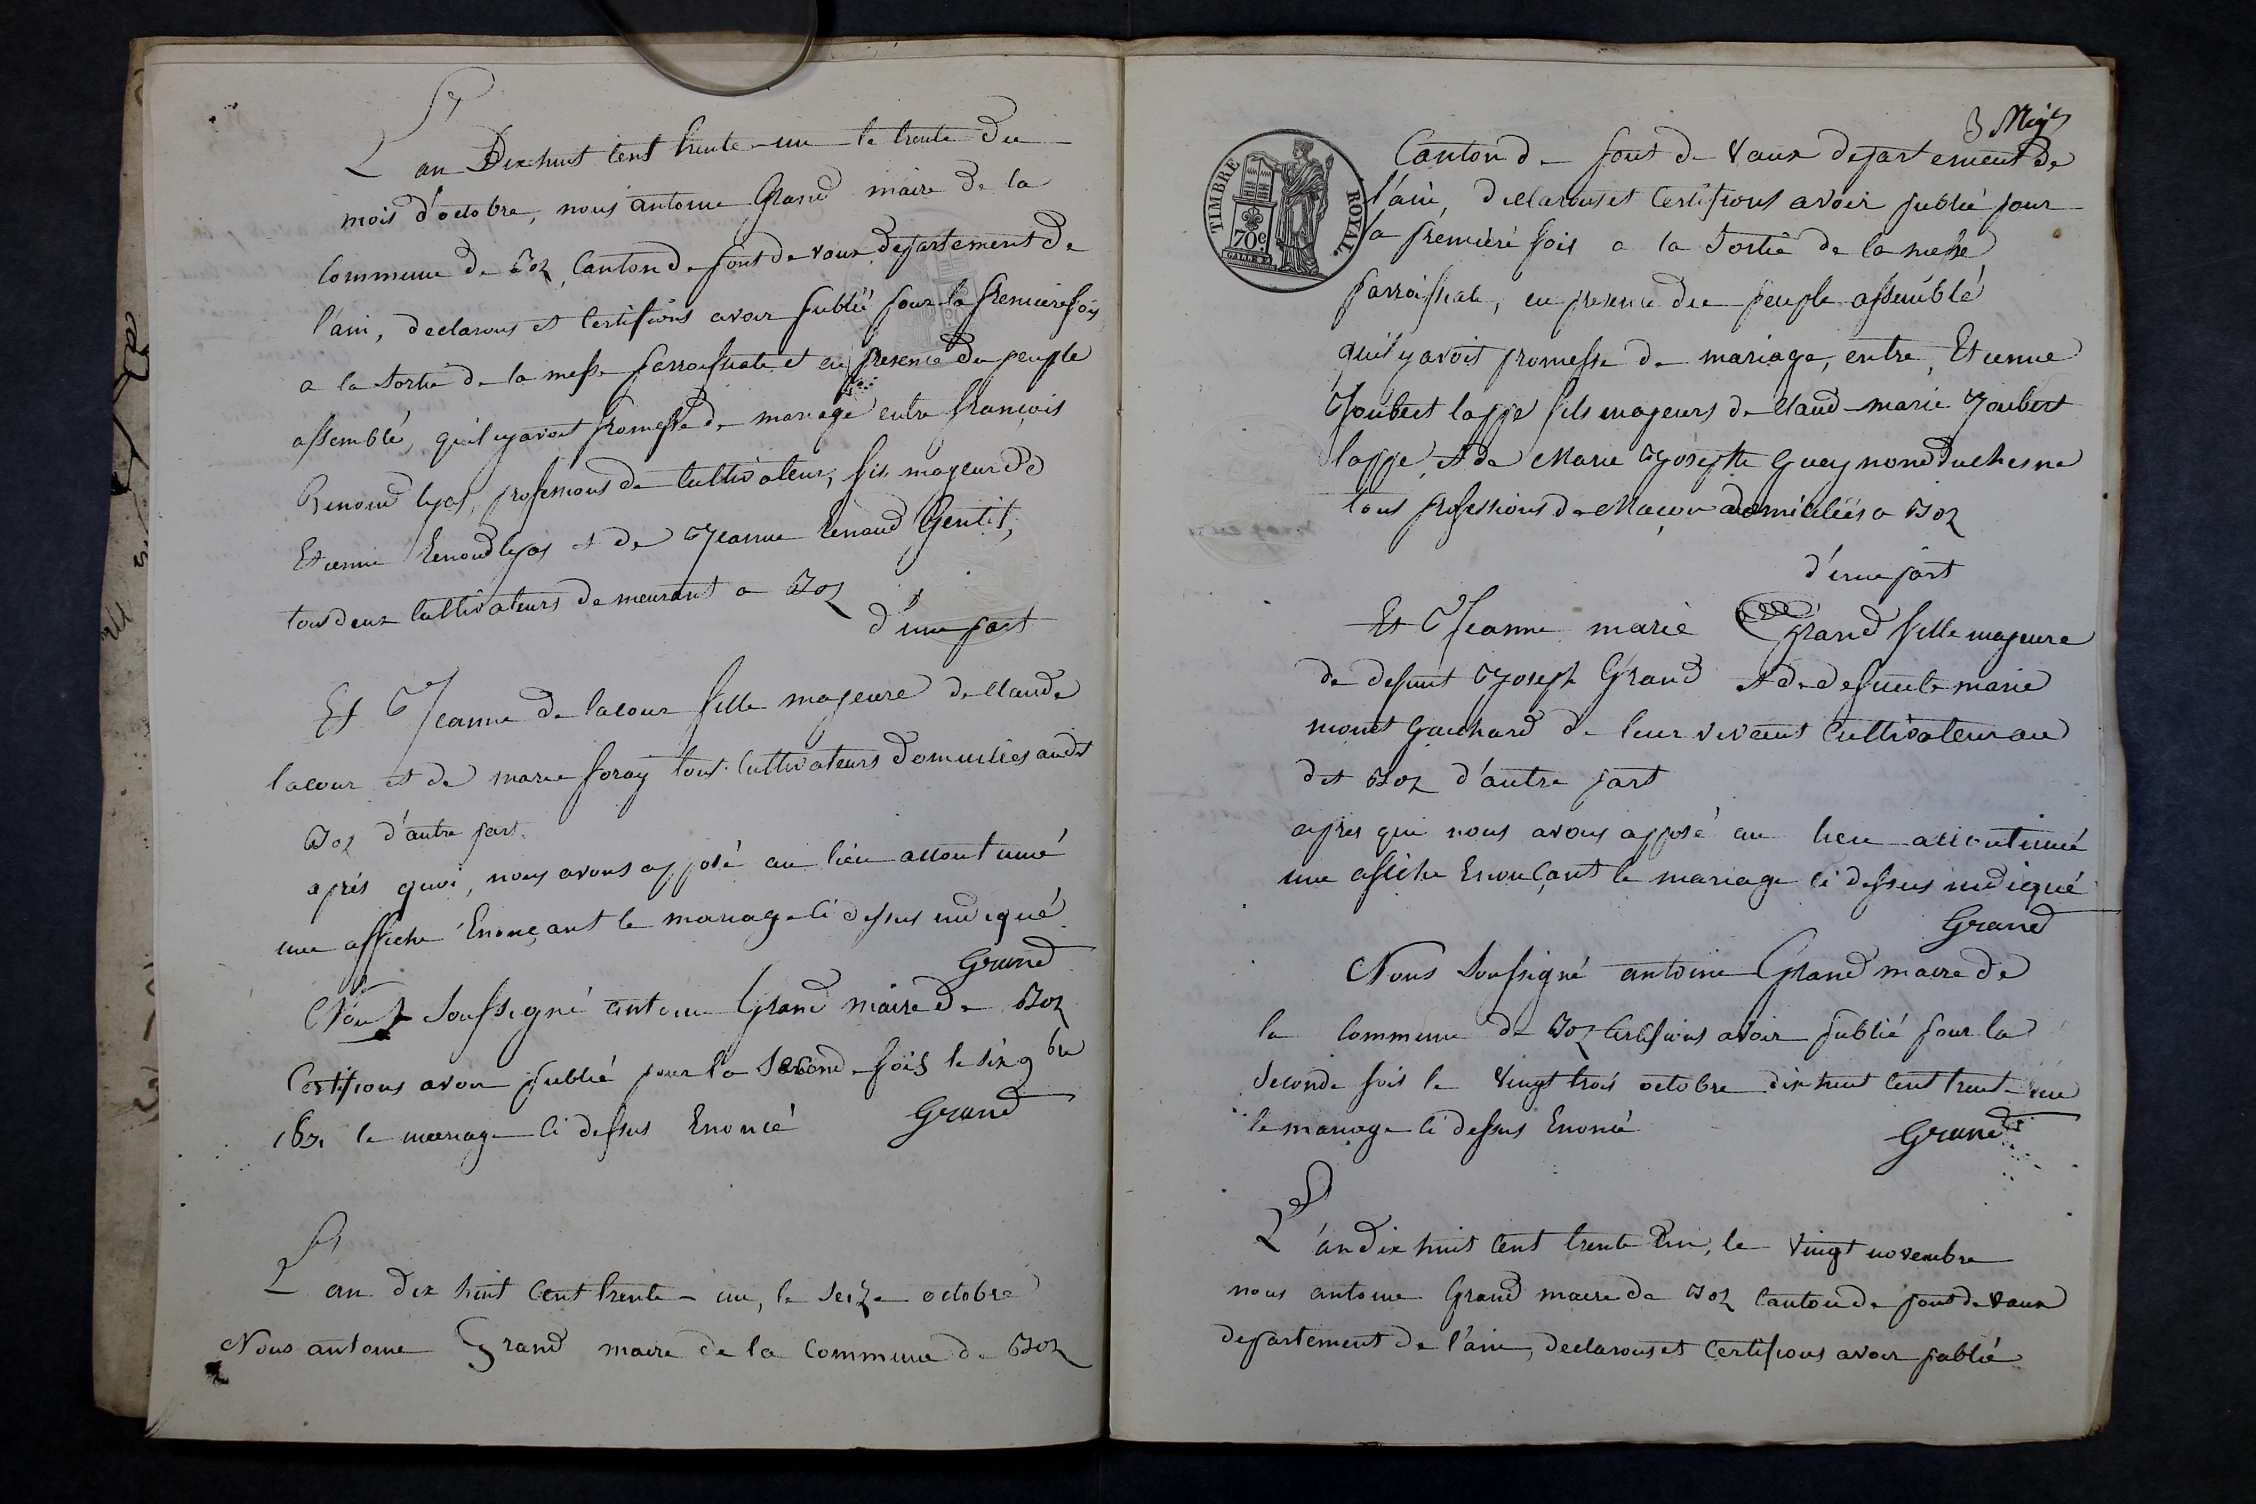 L'an Dix huit cent trente-un le trente du
mois d'octobre, nous antoine Grand maire de la
Commune de Boz, Canton de pont de vaux, departement de
l'ain, declarons et Certifions avoir publié pour la premiere fois
a la Sortie de la messe parroissiale et en presence du peuple
assemblé, qu'il y avoit promesse de mariage entre françois
Renoud lyas, professions de Cultivateur, fils majeur de
Etienne Renoud lyas et de Jeanne Renaud Gentil,
tous deux Cultivateurs demeurant a Boz
d'une part
Et Jeanne de lacour fille majeure de Claude
lacour et de marie foray tous Cultivateurs Domiciliés audit
Boz d'autre part.
après quoi, nous avons apposé au lieu accoutumé
une affiche Enonçant le mariage Ci dessus indiqué
Grand
Nous Soussigné antoine Grand maire de Boz
Certifions avoir publié pour la Seconde fois le six 9bre
1831 le mariage Ci dessus Enoncé Grand
L'an dix huit Cent trente-un, le Seize octobre
Nous antoine Grand maire de la Commune de Boz
3
TIMBRE ROYAL.
70c.
Canton de pont de Vaux departement de
l'ain, declarons et Certifions avoir publié pour
la premiere fois a la Sortie de la messe
parroissiale, en presence du peuple assemblé
qu'il y avoit promesse de mariage, entre, Etienne
Joubert lappe fils majeurs de Claud-marie Joubert
lappe et de Marie Josephte Gueynond duchesne
tous professions de Maçon domiciliés a Boz
d'une part
Et Jeanne marie Grand fille majeure
de defunt Joseph Grand et de defunte marie
monet Guichard de leur vivant Cultivateur au
dit Boz d'autre part
apres qui nous avons apposé au lieu accoutumé
une affiche Enonçant le mariage Ci dessus indiqué
Grand
Nous Soussigné antoine Grand maire de
la Commune de Boz Certifions avoir publié pour la
Seconde fois le Vingt trois octobre dix huit Cent trente-un
le mariage Ci dessus Enoncé
Grand
L'an dix huit Cent trente un, le Vingt novembre
nous antoine Grand maire de Boz Canton de pont de Vaux
departement de l'ain, declarons et Certifions avoir publié